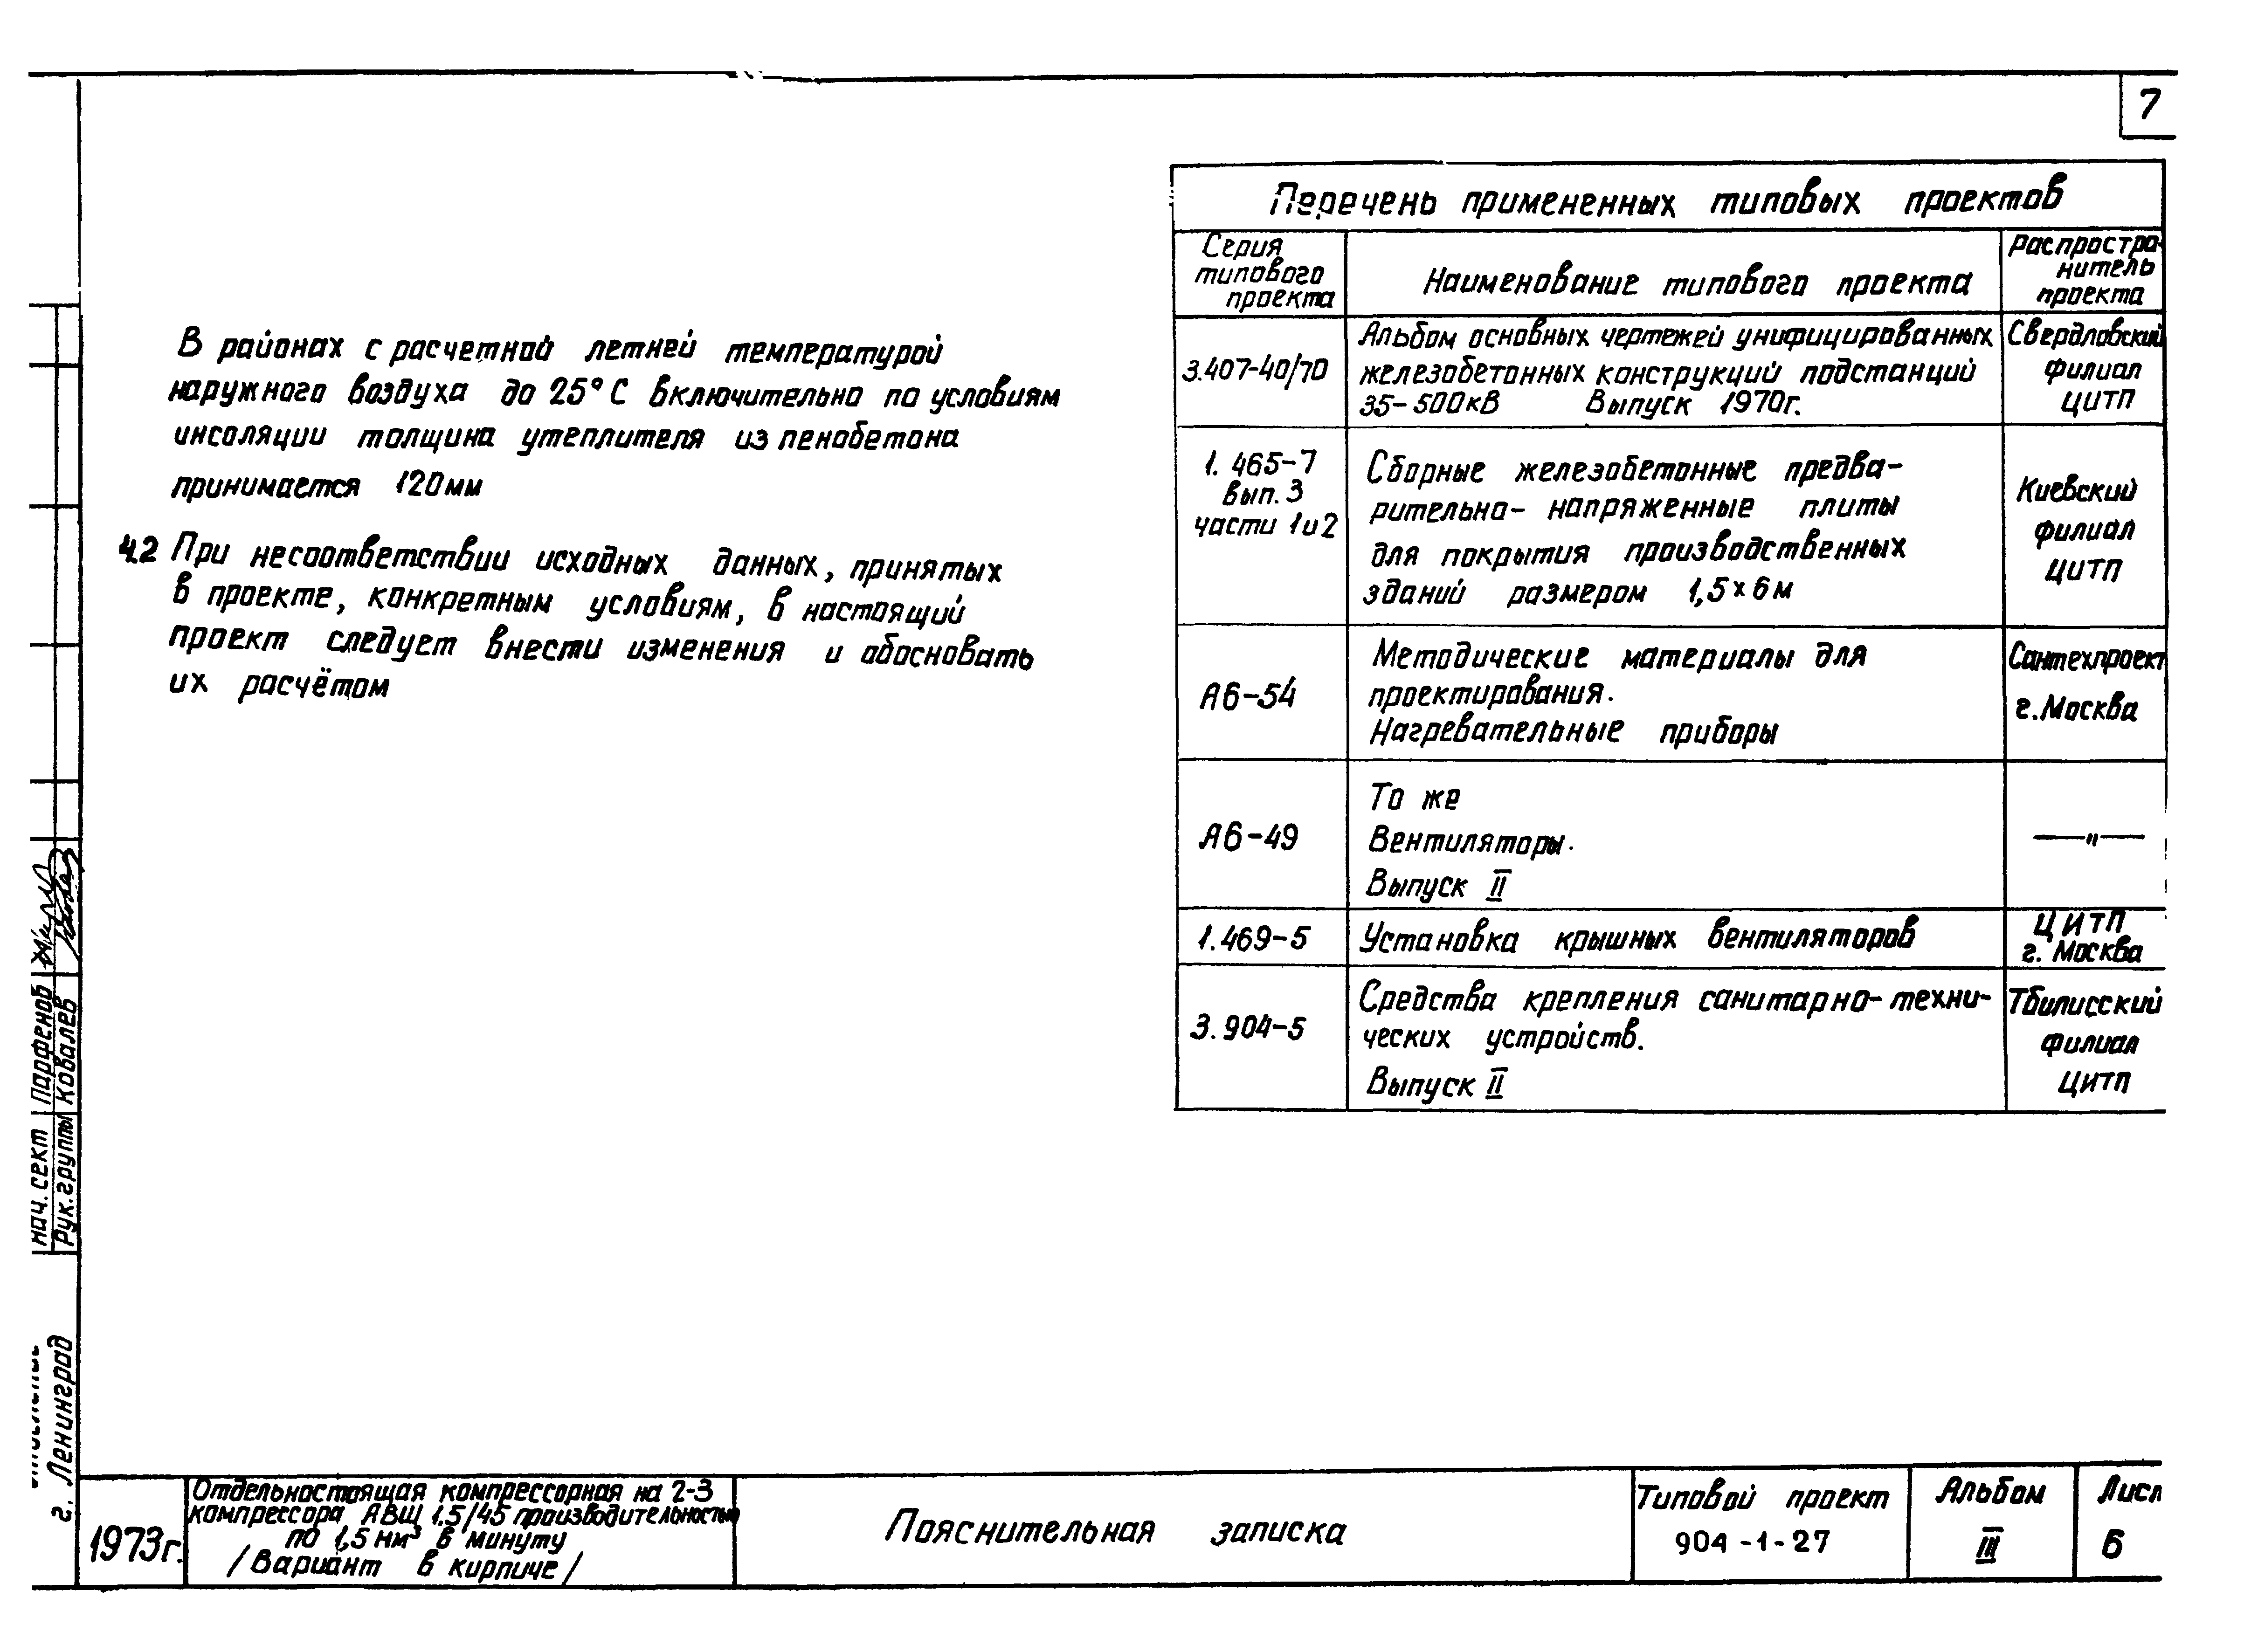 7
В районах с расчетной летней температурой
наружного воздуха до 25° С включительно по условиям
инсоляции толщина утеплителя из пенобетона
принимается 120мм
4.2 При несоответствии исходных данных, принятых
в проекте, конкретным условиям, в настоящий
проект следует внести изменения и обосновать
их расчётом
Перечень примененных типовых проектов
Серия
типового
проекта
Наименование типового проекта
Распростра-
нитель
проекта
3.407-40/70
Альбом основных чертежей унифицированных
железобетонных конструкций подстанций
35-500кВ Выпуск 1970г.
Свердловский
филиал
ЦИТП
1.465-7
вып.3
части 1и2
Сборные железобетонные предва-
рительно- напряженные плиты
для покрытия производственных
зданий размером 1,5×6м
Киевский
филиал
ЦИТП
А6-54
Методические материалы для
проектирования.
Нагревательные приборы
Сантехпроект
г.Москва
А6-49
То же
Вентиляторы.
Выпуск II
—"—
1.469-5
Установка крышных вентиляторов
ЦИТП
г. Москва
3.904-5
Средства крепления санитарно-техни-
ческих устройств.
Выпуск II
Тбилисский
филиал
ЦИТП
нач. сект Парфенов
Рук. группы Ковалев
г. Ленинград
1973г.
Отдельностоящая компрессорная на 2-3
компрессора АВШ 1.5/45 производительностью
по 1,5 нм³ в минуту
/Вариант в кирпиче/
Пояснительная записка
Типовой проект
904-1-27
Альбом
III
Лист
6